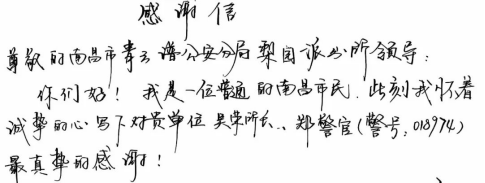 感谢信
尊敬的南昌市青云谱公安分局梨园派出所领导：
你们好！我是一位普通的南昌市民，此刻我怀着
诚挚的心写下对贵单位吴学所长、郑警官（警号：018974）
最真挚的感谢！